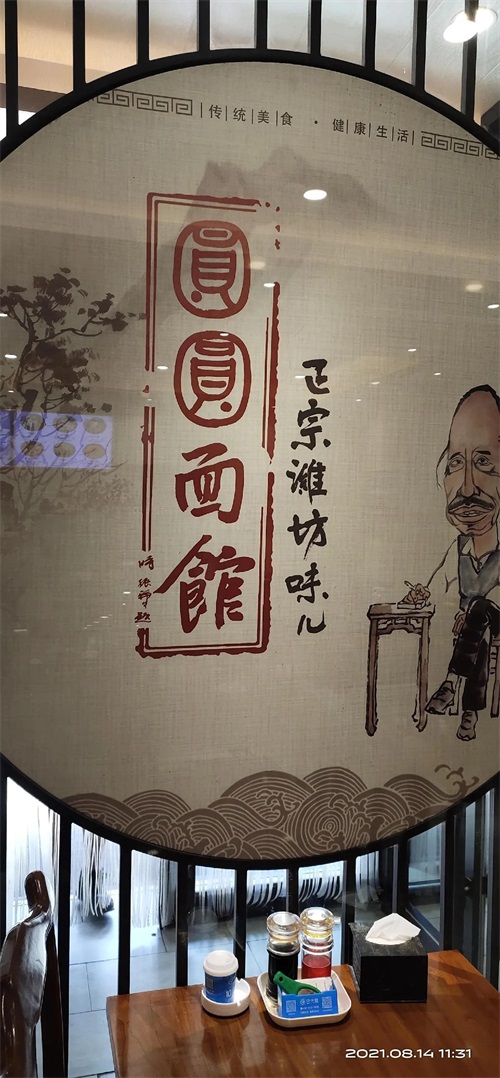 传统美食·健康生活
圓圓面館
正宗潍坊味儿
2021.08.14 11:31